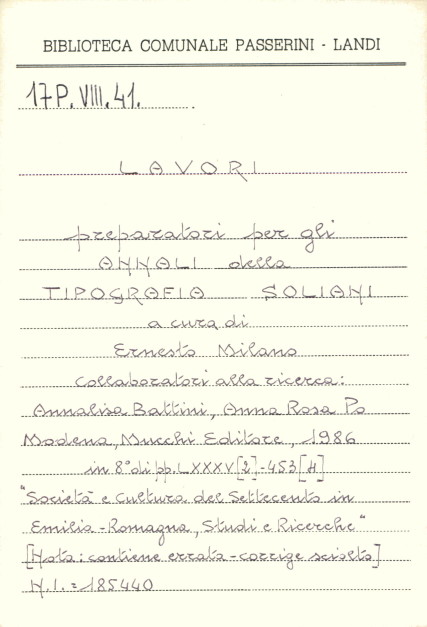 BIBLIOTECA COMUNALE PASSERINI - LANDI
17P.VIII.41.
LAVORI
preparatori per gli
ANNALI della
TIPOGRAFIA SOLIANI
a cura di
Ernesto Milano
Collaboratori alla ricerca:
Annalisa Battini, Anna Rosa Po
Modena, Mucchi Editore, 1986
in 8° di pp. LXXXV[2]-453[4]
"Società e Cultura del Settecento in
Emilia-Romagna, Studi e Ricerche"
[Nota: contiene errata-corrige sciolto]
N.I. = 185440